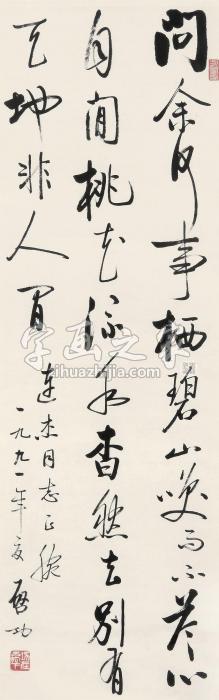 问余何事栖碧山笑而不答心
自闲桃花流水杳然去别有
天地非人间
连杰同志正腕
一九九一年夏 启功
字画之家
zihuazhijia.com